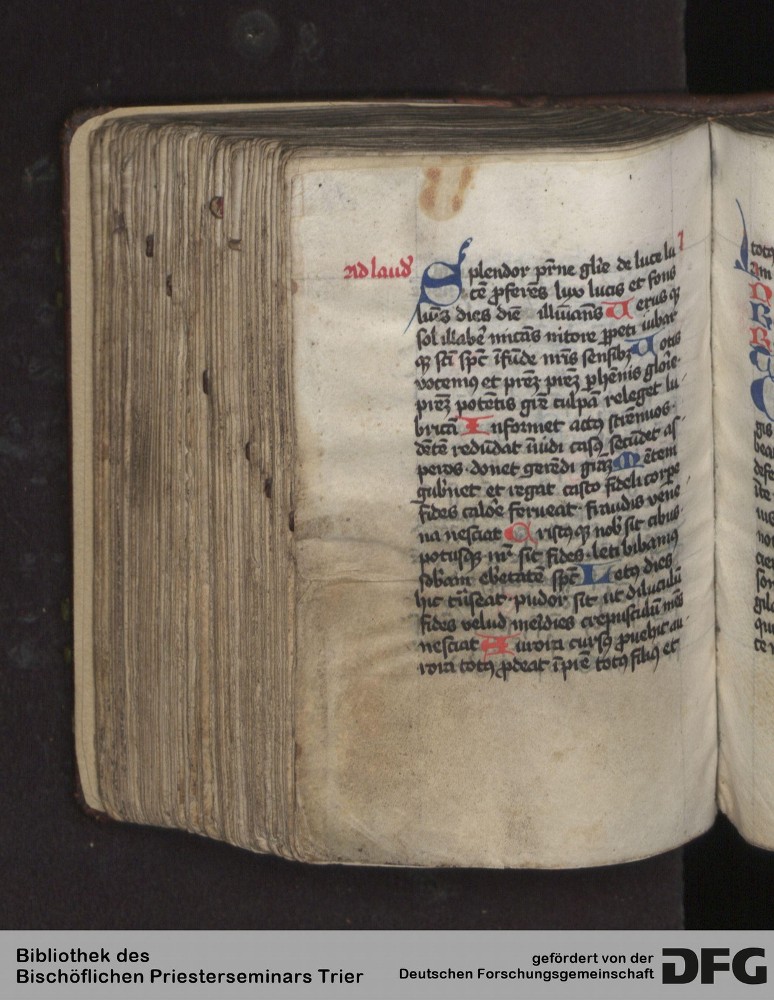 ad laud᷒
Splendor pr̄ne glīe de luce lu
cē ꝓferēs lux lucis et fons
lūīs dies diē illūīans Uerusqꝫ
sol illabē micās nitore ꝑpeti iubar
qꝫ scī spc̄ īfūde nr̄is sensibꝫ Uotis
votemꝰ et prēꝫ prēꝫ phēnis glorīe·
prēꝫ potētis grē culpā releget lu
bricā Informet actꝰ strēnuos·
dētē redūdat īuidi casꝰ secūdet as
peros· donet gerēdi grāꝫ Mētem
gub̄net et regat casto fideli corꝑe
fides calōe ferueat· fraudis vene
na nesciat Cristꝰqꝫ nob̄ sit cibus·
potusqꝫ nr̄ sit fides· leti bibamꝰ
sob̄am eb̄etatē spc̄ Letꝰ dies
hic trāseat· pudor sit ut diluculū
fides velud meīdies crepusculū mēs
nesciat Aurora cursꝰ ꝓuehit au
rora totꝰ ꝓdeat ī pr̄e totꝰ filiꝰ et
Bibliothek des
Bischöflichen Priesterseminars Trier
gefördert von der
Deutschen Forschungsgemeinschaft DFG